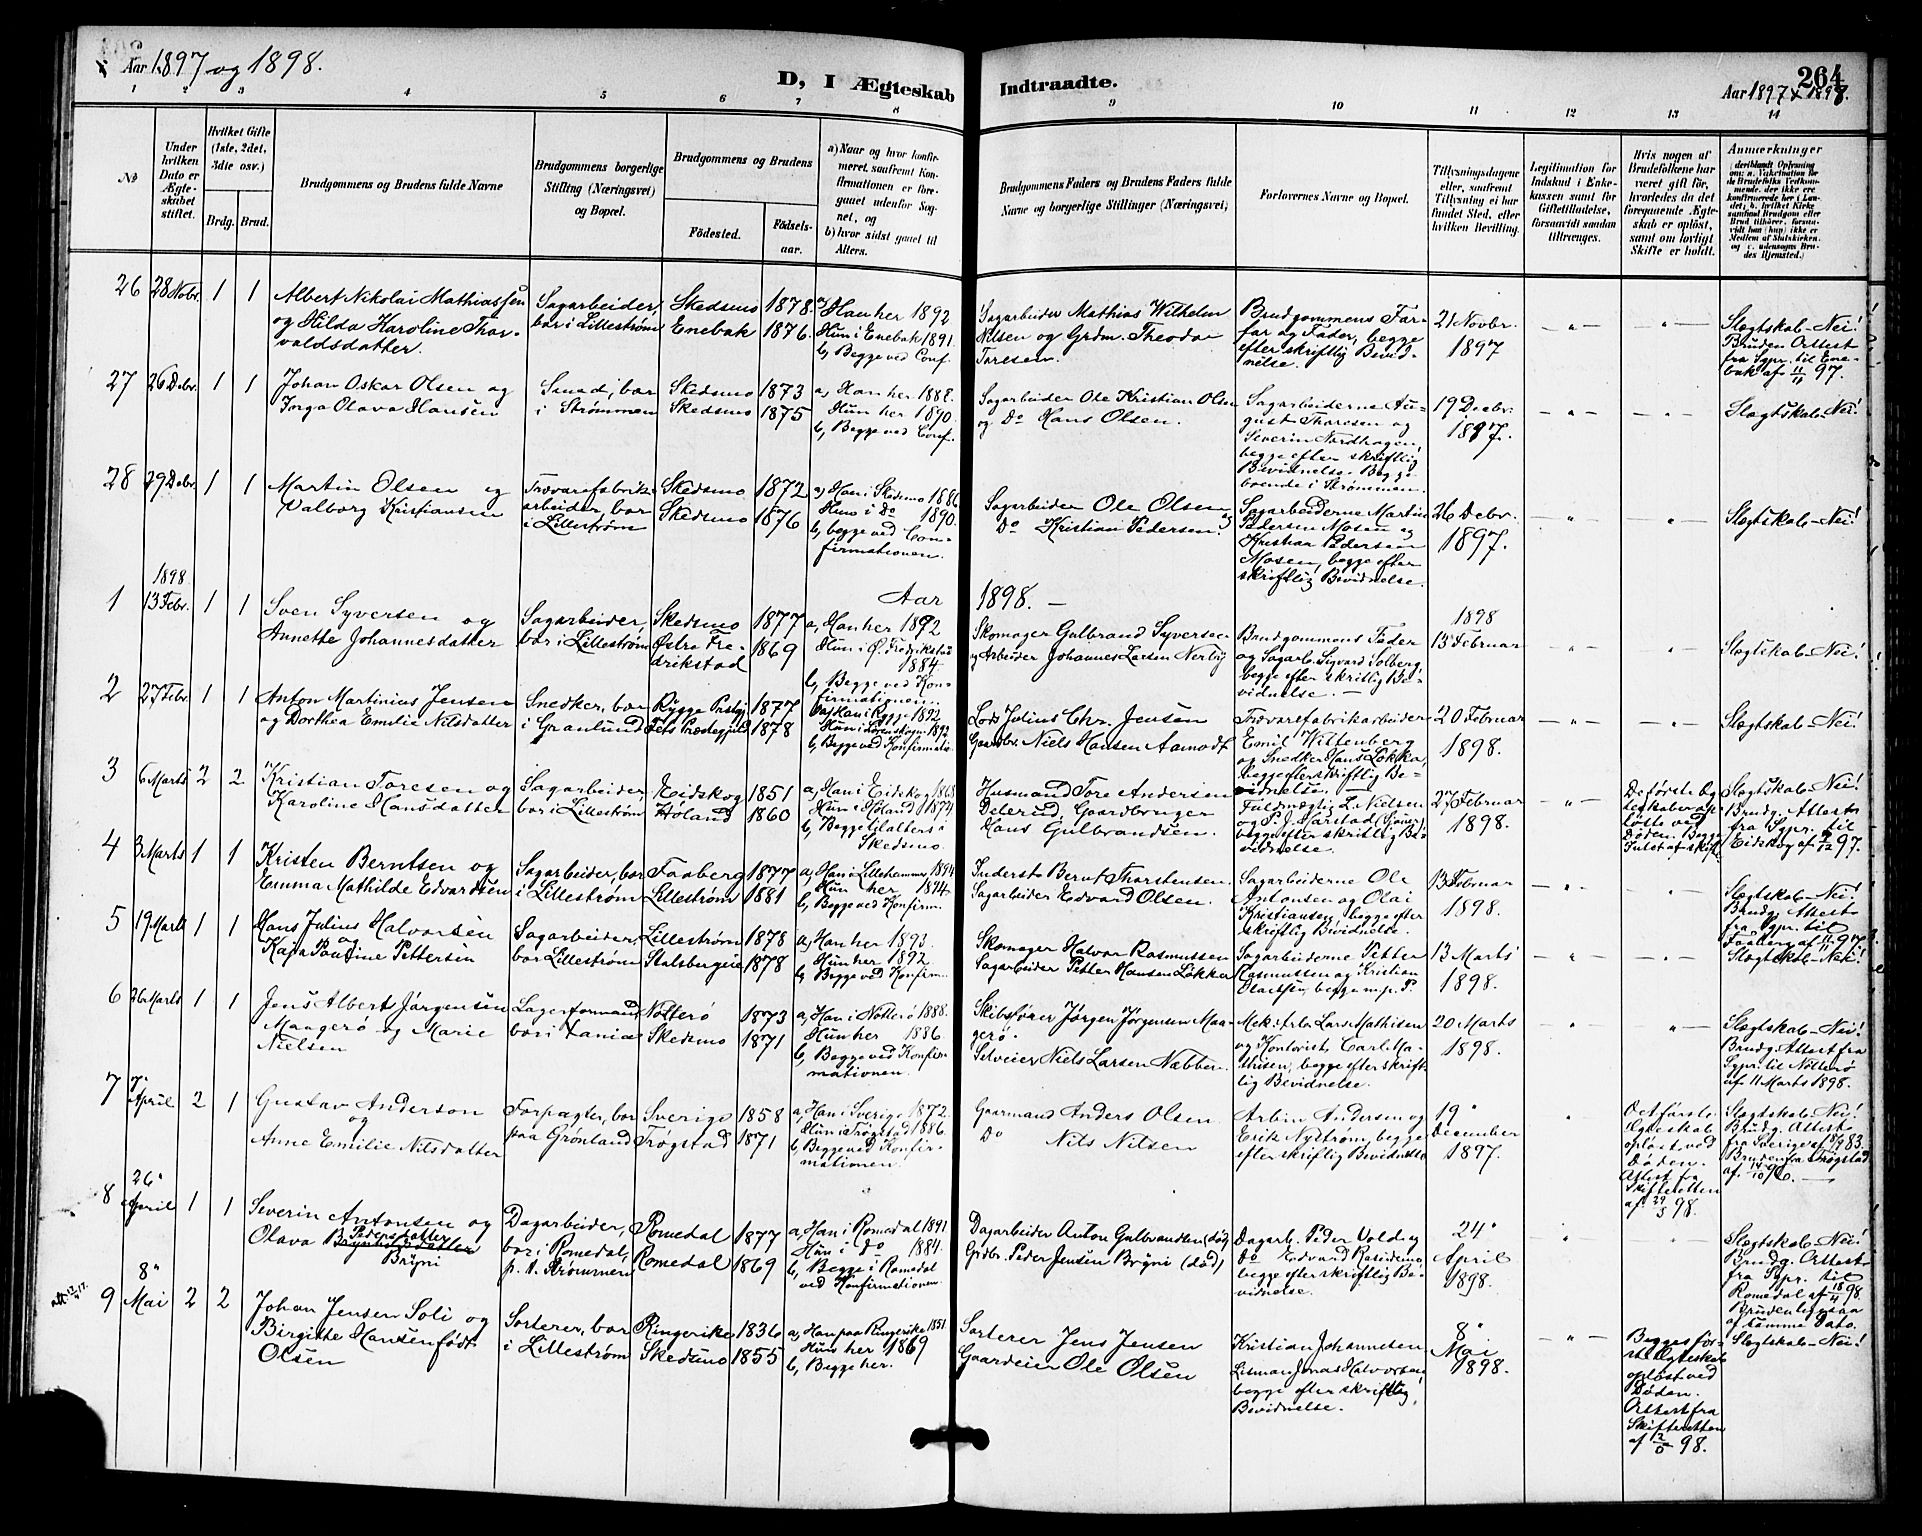 Aar 1897 og 1898.
D, I Ægteskab
Indtraadte.
264
Aar 1897 & 1898.
1 2 3 4 5 6 7 8 9 10 11 12 13 14
No
Under hvilken Dato er Ægteskabet stiftet.
Hvilket Gifte (1ste, 2det, 3die osv.)
Brdg. Brud.
Brudgommens og Brudens fulde Navne
Brudgommens borgerlige Stilling (Næringsvei) og Bopæl.
Brudgommens og Brudens
Fødested.
Fødselsaar.
a) Naar og hvor konfirmeret, saafremt Konfirmationen er foregaaet udenfor Sognet, og
b) hvor sidst gaaet til Alters.
Brudgommens Faders og Brudens Faders fulde Navne og borgerlige Stillinger (Næringsvei)
Forlovernes Navne og Bopæl.
Tillysningsdagene eller, saafremt Tillysning ei har fundet Sted, efter hvilken Bevilling.
Legitimation for Indskud i Enkekassen samt for Giftetilladelse, forsaavidt saadan tiltrænges.
Hvis nogen af Brudefolkene har været gift før, hvorledes da det foregaaende Ægteskab er opløst, samt om lovligt Skifte er holdt.
Anmerkninger
26 28 Nobr. 1 1
Albert Nikolai Mathiassen
og Hilda Karoline Thorvaldsdatter.
Sagarbeider, bor i Lillestrøm
Skedsmo 1878.
Enebak 1876.
a, Han her 1892
Hun i Enebak 1891.
b, Begge ved Conf.
Sagarbeider Mathias Wilhelm
Nilsen og Grdm. Theodor
Toresen.
Brudgommens Farfar og Fader, begge
efter skriftlig Bevidnelse.
21 Novbr. 1897
Slægtskab-Nei!
Bruden Attest
fra Sgpr. til Enebak af 11/11 97.
27 26 Debr. 1 1
Johan Oskar Olsen og
Inga Olava Hansen
Smed, bor
i Strømmen
Skedsmo 1873
Skedsmo 1875
a, Han her 1888.
Hun her 1890.
b, Begge ved Conf.
Sagarbeider Ole Kristian Olsen
og Do Hans Olsen.
Sagarbeiderne August Thoresen og
Severin Nordhagen,
begge efter skriftlig
Bevidnelse. Begge
boende i Strømmen.
19 Decbr. 1897.
Slægtskab-Nei!
28 29 Debr. 1 1
Martin Olsen og
Valborg Kristiansen
Trævarefabrikarbeider, bor
i Lillestrøm
Skedsmo 1872
Skedsmo 1876
a) Han i Skedsmo 1886
Hun i Do 1890.
b, begge ved Confirmationen.
Sagarbeider Ole Olsen og
Do Kristian Pedersen.
Sagarbeiderne Martin
Pedersen Mosen og
Kristian Pedersen
Mosen, begge efter
skriftlig Bevidnelse.
26 Debr. 1897.
Slægtskab-Nei!
Aar 1898.
1898
1 13 Febr. 1 1
Sven Syversen og
Annette Johannesdatter
Sagarbeider,
bor i Lillestrøm
Skedsmo 1877
Østre Fredrikstad 1869
a, Han her 1892
Hun i Ø. Fredrikstad
1884.
b, Begge ved Konfirmationen.
Skomager Gulbrand Syversen
og Arbeider Johannes Larsen Nerby
Brudgommens Fader
og Sagarb. Sigvard Solberg,
begge efter skriftlig Bevidnelse.
1898
13 Februar
Slægtskab-Nei!
2 27 Febr. 1 1
Anton Martinius Jensen
og Dorthea Emilie Nilsdatter
Snedker, bor
i Granlund
Rygge Prstgj. 1877
Fets Præstegjeld 1878
a, Han i Rygge 1892
Hun i Lørenskogen 1892
b, Begge ved Konfirmatio.
Lods Julius Chr. Jensen
Gaardbr. Niels Hansen Aamodt
Trævarefabrikarbeider
Emil Wittenberg
og Snedker Hans Løkka,
begge efter skriftlig Bevidnelse.
20 Februar 1898.
Slægtskab-Nei!
3 6 Marts 2 2
Kristian Toresen og
Karoline Hansdatter
Sagarbeider,
bor i Lillestrøm
Eidskog 1851
Høland 1860
a, Han i Eidskog 1868
Hun i Høland 1874
b, Begge til alters i
Skedsmo.
Husmand Tore Andersen
Gaardbruger
Hans Gulbrandsen.
Fuldmægtig L. Nielsen
begge efter skriftlig Bevidnelse.
27 Februar 1898.
De første Ægteskaber opløste ved
Døden. Begge
Slægtskab-Nei!
Brudg. Attest
fra Sgpr. til
Eidskog af 9/12 97.
4 3 Marts 1 1
Kristen Berntsen og
Emma Mathilde Edvardsen
Sagarbeider, bor
i Lillestrøm
Faaberg 1877
Lillestrøm 1881
a, Han i Lillehammer 1894
Hun her 1894.
b, Begge ved Konfirm.
Inderst Bernt Thorstensen.
Sagarbeider Edvard Olsen.
Sagarbeiderne Ole
Antonsen og Olai
Kristiansen, begge efter
skriftlig Bevidnelse.
13 Februar 1898.
Slægtskab-Nei!
Brudg. Attest
fra Sgpr. til
Faaberg af 11/11 97.
5 19 Marts 1 1
Hans Julius Halvorsen
og
Kaja Pauline Pettersen
Sagarbeider,
bor Lillestrøm
Lillestrøm 1878
Stalsbergeie 1878
a, Han her 1893.
Hun her 1892
b, Begge ved Konfirm.
Skomager Halvor Rasmussen
Sagarbeider Petter Hansen Løkker
Sagarbeiderne Petter
Rasmussen og Kristian
Olaussen, begge m. p. P.
13 Marts 1898.
Slægtskab-Nei!
6 26 Marts 1 1
Jens Albert Jørgensen
Maagerø og Marie
Nielsen
Lagerformand
bor i
Nøtterø 1873
Skedsmo 1871
a, Han i Nøtterø 1888.
Hun her 1886
b, Begge ved Konfirmationen.
Skibsfører Jørgen Jørgensen Maagerø.
Selveier Niels Larsen Nabben.
Mek. arb. Lars Mathisen
og Kontorist Carl Mathisen, begge efter skriftlig Bevidnelse.
20 Marts 1898.
Slægtskab-Nei!
Brudg. Attest fra
Sgpr. til Nøtterø
af 11 Marts 1898.
7 7" April 2 1
Gustav Anderson
og
Anne Emilie Nilsdatter
Forpagter, bor
paa Grønland
Sverige 1858
Trøgstad 1871
a, Han i Sverige 1872.
Hun i Trøgstad 1886.
b, Begge ved Konfirmationen.
Gaarmand Anders Olsen.
Do Nils Nilsen
Arbm. Andersen og
Erik Nystrøm, begge
efter skriftlig Bevidnelse
19" December 1897.
Det første
Ægteskab
opløst ved
Døden.
Attest fra
Skifteretten
af 29/3 98.
Slægtskab-Nei!
Brudg. Attest
fra Sverige af 18/9 83.
Bruden fra Trøgstad
af 14/10 96.
8 26" April 1 1
Severin Antonsen og
Olava Brynhildsdatter Pedersdatter
Bryni
Dagarbeider,
bor i Romedal,
p. t. Strømmen
Romedal 1877
Romedal 1869
a, Han i Romedal 1891
Hun i Do 1884.
b, Begge i Romedal
ved Konfirmationen.
Dagarbeider Anton Gulbrandsen (død)
Grdbr. Peder Jensen Bryni (død)
Dagarb. Peder Vold og
Do Edvard
begge efter skriftlig Bevidnelse.
24" April 1898.
Slægtskab-Nei!
Brudg. Attest
fra Sgpr. til
Romedal af 18/4 98.
Bruden ligesaa
af samme Dato.
att. 12/4 17.
9 8" Mai 2 2
Johan Jensen Soli og
Birgitte Hansen født
Olsen
Sorterer, bor
i Lillestrøm
Ringerike 1836
Skedsmo 1855
a, Han paa Ringerike 1851
Hun her 1869
b, Begge her.
Sorterer Jens Jensen
Gaardeier Ole Olsen
Kristian Johannesen
Jonas Halvorsen,
begge efter skriftlig
Bevidnelse.
8" Mai 1898.
Begges første Ægteskab
opløst ved
Døden.
Attest fra
Skifteretten
af 2/5 98.
Slægtskab-Nei!